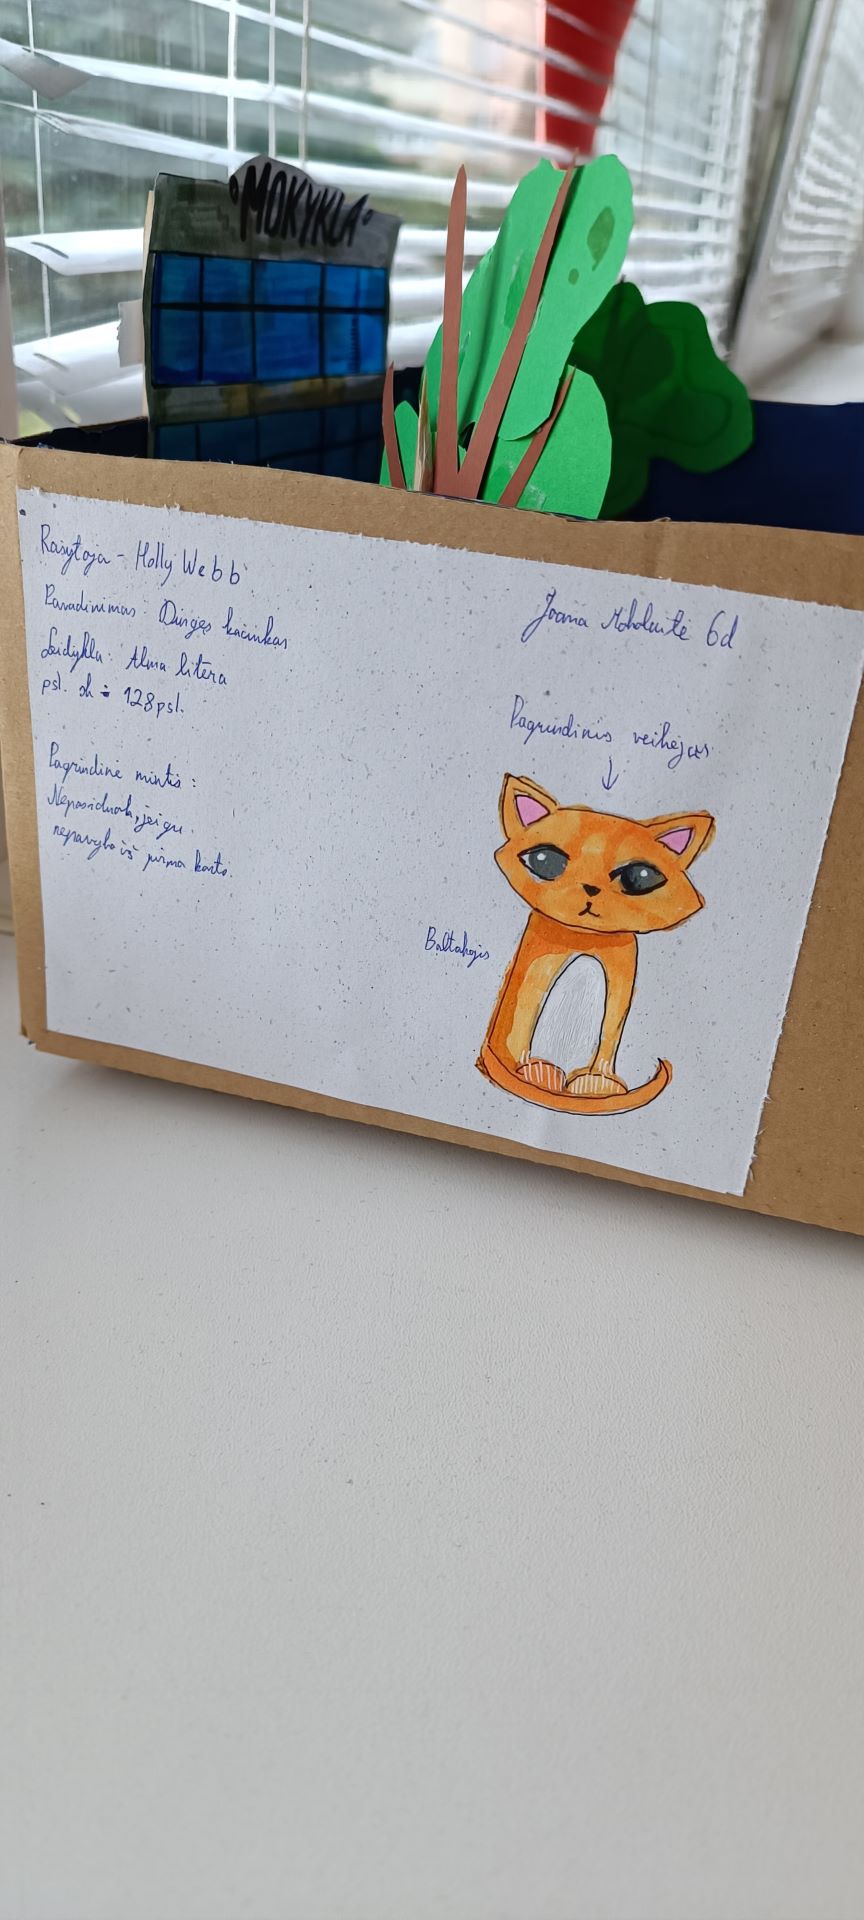 MOKYKLA
Rašytoja - Holly Webb
Pavadinimas: Dingęs kačiukas
Leidykla: Alma litera
psl. sk - 128 psl.
Pagrindinė mintis:
Nepasiduok, jeigu
nepavyko iš pirmo karto.
Joana 6d
Pagrindinis veikėjas
Baltakojis